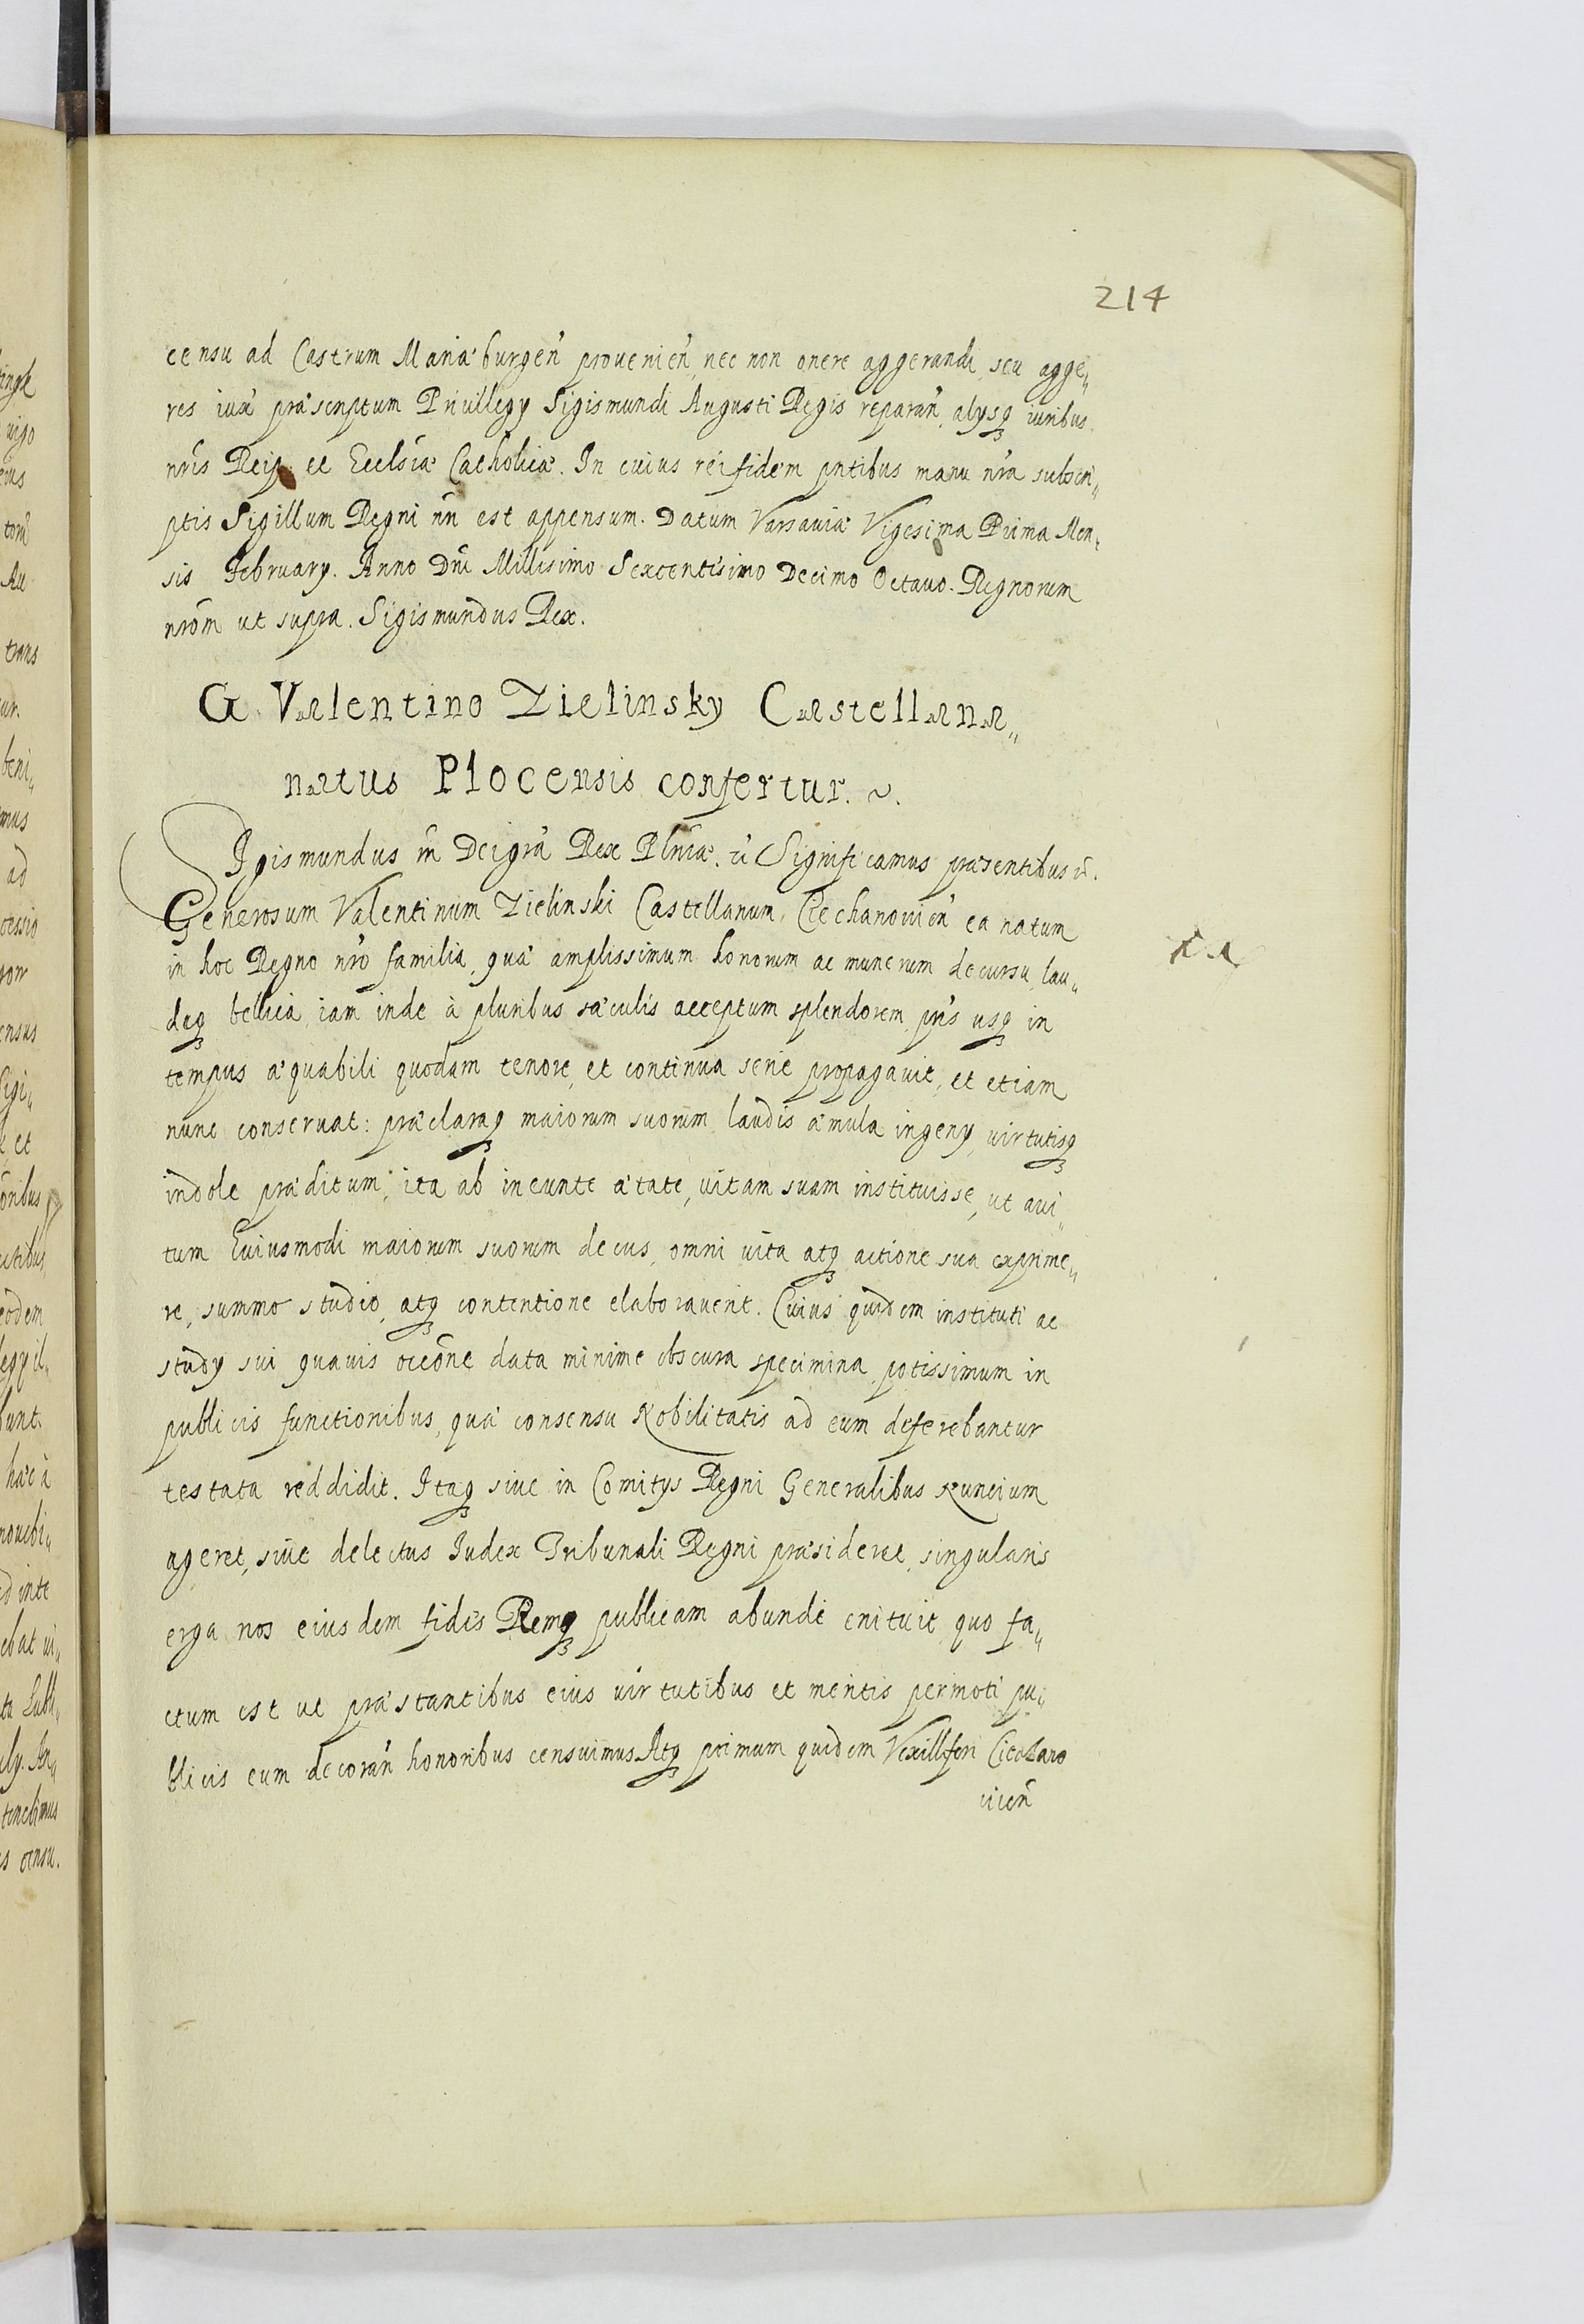 214
censu ad Castrum Mariæburgeñ prouenieñ, nec non onere aggerandi seu agge„
res iuxẽ præscriptum Priuillegy Sigismundi Augusti Regis reparañ, alysq iuribus
nr̃is Reip et Ecclsiæ Catholicæ. In cuius rei fidem pntibus manu nr̃a subscri„
ptis Sigillum Regni nr̃i est appensum. Datum Varsauiæ Vigesima Prima Men„
sis February. Anno Dñi Millisimo Sexcentisimo Decimo Octauo. Regnorum
nrõm ut supra. Sigismundus Rex.
G. Valentino Zielinsky Castellana„
natus Plocensis confertur. ~.
Sigismundus III Dei gr̃a Rex Plniæ. ẽ Significamus præsentibus ẽ.
Generosum Valentinum Zielinski Castellanum Ciechanouieñ ea natum
in hoc Regno nr̃o familia, quæ amplissimum honorum ac munerum decursu, lau„
deq bellica, iam inde à pluribus sæculis acceptum splendorem pñs usq in
tempus æquabili quodam tenore, et continua serie propagauit, et etiam
nunc conseruat: præclaraq maiorum suorum laudis æmula ingeny, uirtutisq
indole præditum, ita ab ineunte ætate, uitam suam instituisse, ut aui„
tum Euiusmodi maiorum suorum decus, omni uita atq actione sua exprime„
re, summo studio, atq contentione elaborauerit. Cuius quidem instituti ac
study sui quauis occõne data minime obscura specimina potissimum in
publicis functionibus, quæ consensu Nobilitatis ad eum deferebantur
testata reddidit. Itaq siue in Comitys Regni Generalibus Nuncium
ageret, siue delectus Iudex Tribunali Regni præsideret, singularis
erga nos eiusdem fides Remq publicam abunde enituit, quo fa„
ctum est ut præstantibus eius uirtutibus et meritis permoti pu„
blicis eum decorañ honoribus censuimus Atq primum quidem Vexilliferi
uieñ